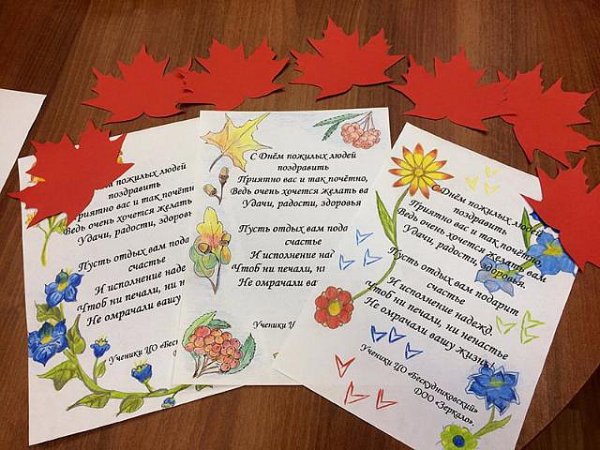 пожилых людей
поздравить
Приятно вас и так почётн
Ведь очень хочется желать
Удачи, радости, здоровь
Пусть отдых вам пода
счастье
И исполнение наде
Чтоб ни печали, н
Не омрачали вашу
Ученики ЦО «Бес
С Днём пожилых людей
поздравить
Приятно вас и так почётно,
Ведь очень хочется желать ва
Удачи, радости, здоровья
Пусть отдых вам пода
счастье
И исполнение над
Чтоб ни печали, н
Не омрачали ва
Ученики Ц
С Днём пожилых людей
поздравить
Приятно вас и так почётно,
Ведь очень хочется желать вам
Удачи, радости, здоровья.
Пусть отдых вам подарит
счастье
И исполнение надежд,
Чтоб ни печали, ни ненастье
Не омрачали вашу жизнь!
Ученики ЦО «Бескудниковский»
ДОО «Зеркало».